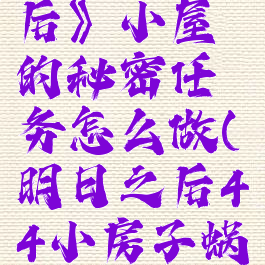 后》小屋
的秘密任
务怎么做(
明日之后4
4小房子蜗